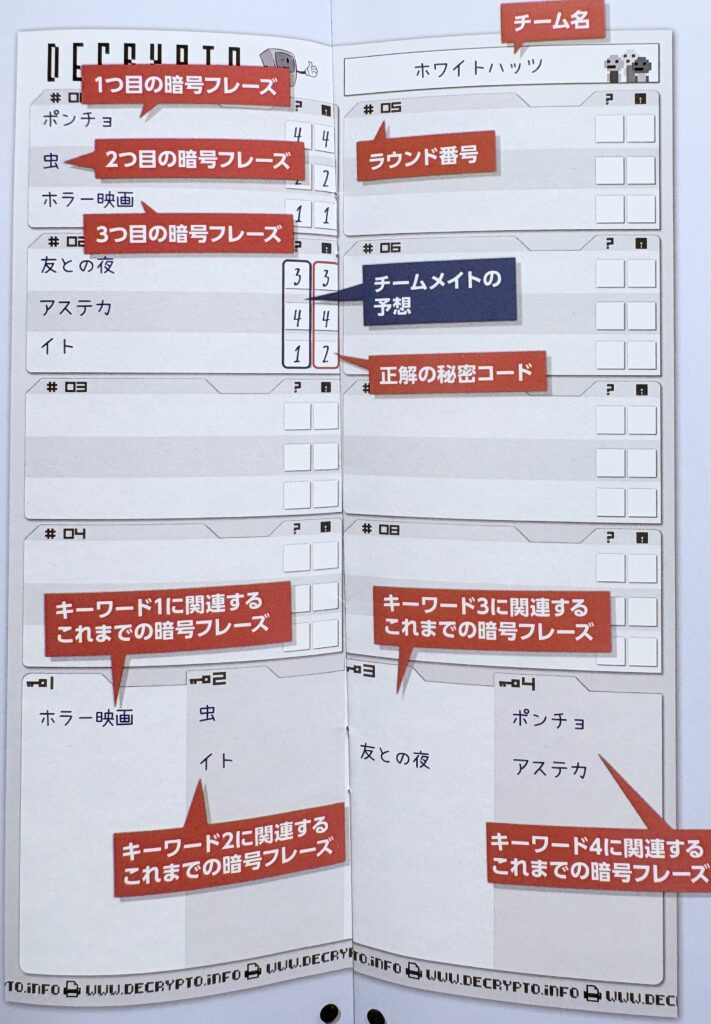 DECRYPTO
チーム名
ホワイトハッツ
1つ目の暗号フレーズ
ポンチョ
? 
4 4
2つ目の暗号フレーズ
虫
2
3つ目の暗号フレーズ
ホラー映画
1 1
# 02
?
友との夜
3 3
アステカ
4 4
イト
1 2
チームメイトの
予想
正解の秘密コード
# 03
?
# 04
?
# 05
?
ラウンド番号
# 06
?
?
# 08
?
キーワード1に関連する
これまでの暗号フレーズ
キーワード3に関連する
これまでの暗号フレーズ
1
ホラー映画
2
虫
イト
キーワード2に関連する
これまでの暗号フレーズ
3
友との夜
4
ポンチョ
アステカ
キーワード4に関連する
これまでの暗号フレーズ
TO.iNFO WWW.DECRYPTO.iNFO WWW.DECRY
PTO.iNFO WWW.DECRYPTO.iNFO WWW.DEC